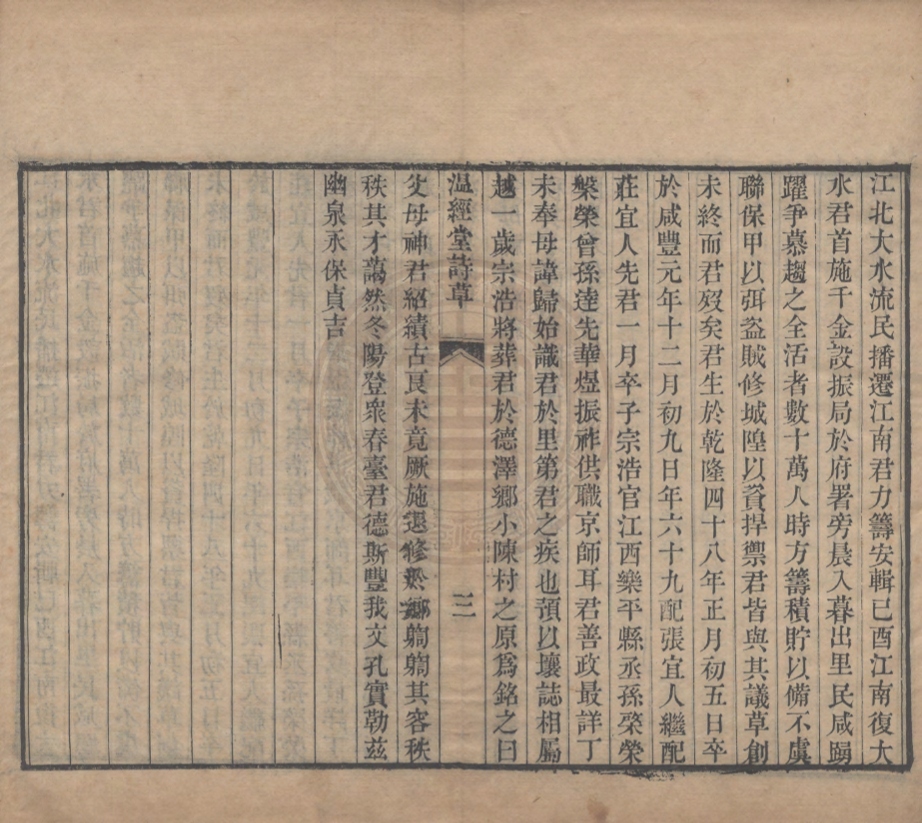 江北大水流民播遷江南君力籌安輯己酉江南復大
水君首施千金設振局於府署旁晨入暮出里民咸踴
躍爭慕趨之全活者數十萬人時方籌積貯以備不虞
聯保甲以弭盜賊修城隍以資捍禦君皆與其議草創
未終而君歿矣君生於乾隆四十八年正月初五日卒
於咸豐元年十二月初九日年六十九配張宜人繼配
莊宜人先君一月卒子宗浩官江西樂平縣丞孫棨榮
槃榮曾孫逵先華煜振祚供職京師耳君善政最詳丁
未奉母諱歸始識君於里第君之疾也預以壙誌相屬
越一歲宗浩將葬君於德澤鄉小陳村之原爲銘之曰
温經堂詩草
三
父母神君紹績古良未竟厥施退修於鄉躹躹其容秩
秩其才藹然冬陽登衆春臺君德斯豐我文孔實勒茲
幽泉永保貞吉